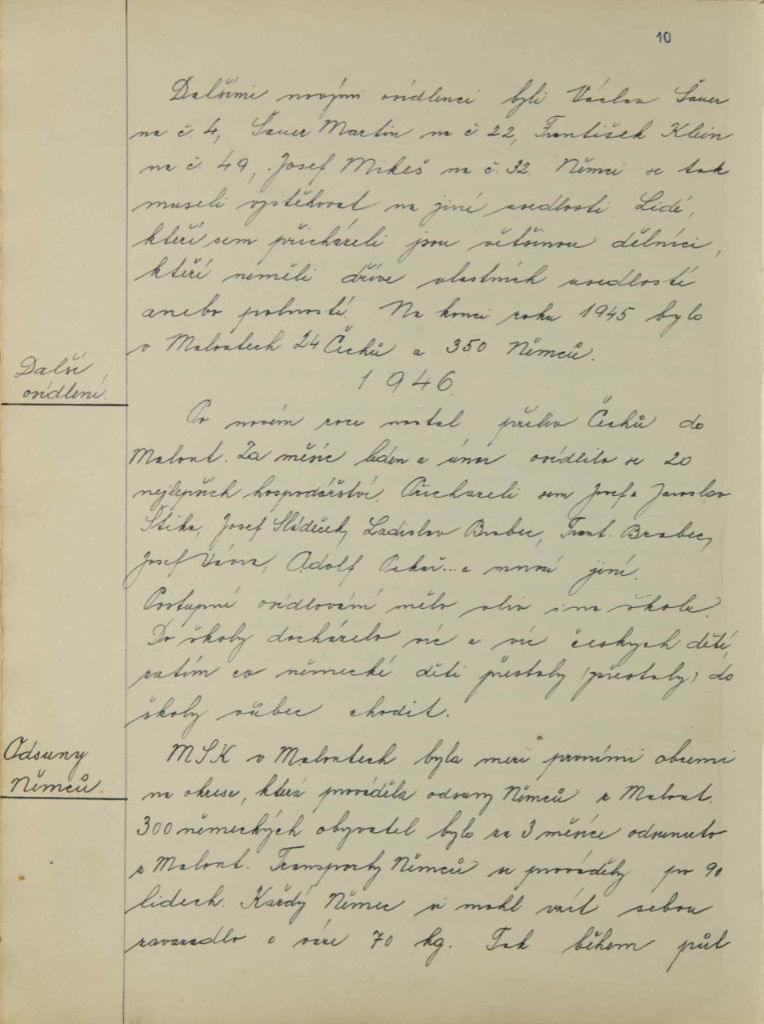 10
Dalšími novými osídlenci byli Václav Šauer
na č. 4, Šauer Martin na č. 22, František Klein
na č. 49, Josef Mikeš na č. 32. Němci se tak
museli vystěhovat na jiné usedlosti. Lidé,
kteří sem přicházeli jsou většinou dělníci,
kteří neměli dříve vlastních usedlostí
anebo polností. Na konci roku 1945 bylo
v Malontech 24 Čechů a 350 Němců.
Další
osídlení.
1946.
Po novém roce nastal příliv Čechů do
Malont. Za měsíc leden a únor osídlilo se 20
nejlepších hospodářství. Přicházeli sem Josef a Jaroslav
Štika, Josef Sládeček, Ladislav Brabec, Frant. Brabec,
Josef Vávra, Adolf Pekař... a mnozí jiní.
Postupné osídlování mělo vliv i na školu.
Do školy docházelo víc a víc českých dětí,
zatím co německé děti přestaly (přestaly) do
školy vůbec chodit.
Odsuny
Němců.
MSK v Malontech byla mezi prvními obcemi
na okrese, která prováděla odsuny Němců z Malont.
300 německých obyvatel bylo za 3 měsíce odsunuto
z Malont. Transporty Němců se prováděly po 90
lidech. Každý Němec si mohl vzít sebou
zavazadlo o váze 70 kg. Tak během půl